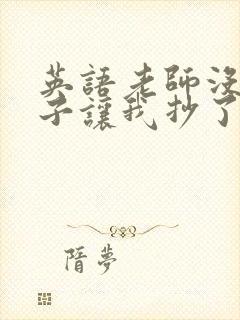 英語老師沒
子讓我抄了
隋夢